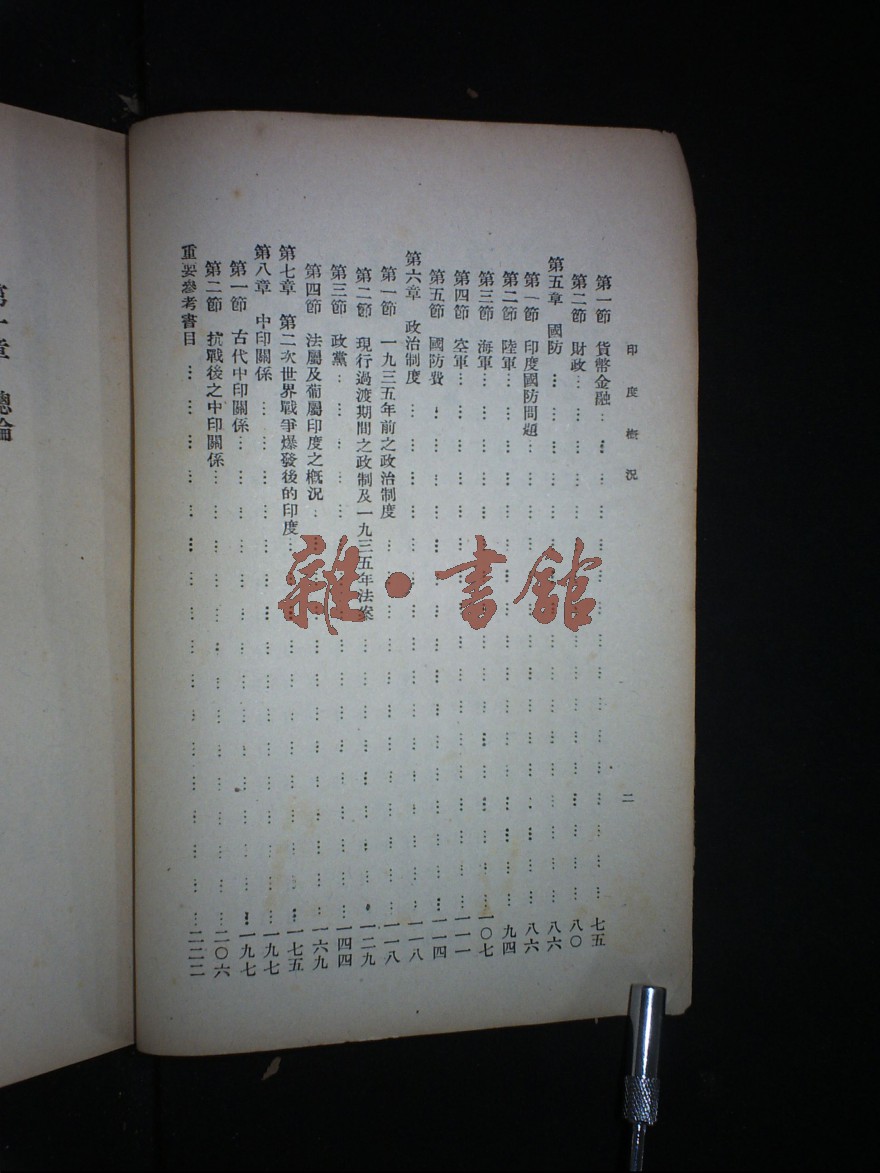 印度概況
二
第一節 貨幣金融 七五
第二節 財政 八〇
第五章 國防 八六
第一節 印度國防問題 八六
第二節 陸軍 九四
第三節 海軍 一〇七
第四節 空軍 一一一
第五節 國防費 一一四
第六章 政治制度 一一八
第一節 一九三五年前之政治制度 一一八
第二節 現行過渡期間之政制及一九三五年法案 一二九
第三節 政黨 一四四
第四節 法屬及葡屬印度之概況 一六九
第七章 第二次世界戰爭爆發後的印度 一七五
第八章 中印關係 一九七
第一節 古代中印關係 一九七
第二節 抗戰後之中印關係 二〇六
重要參考書目 二二二
總論
雜·書館